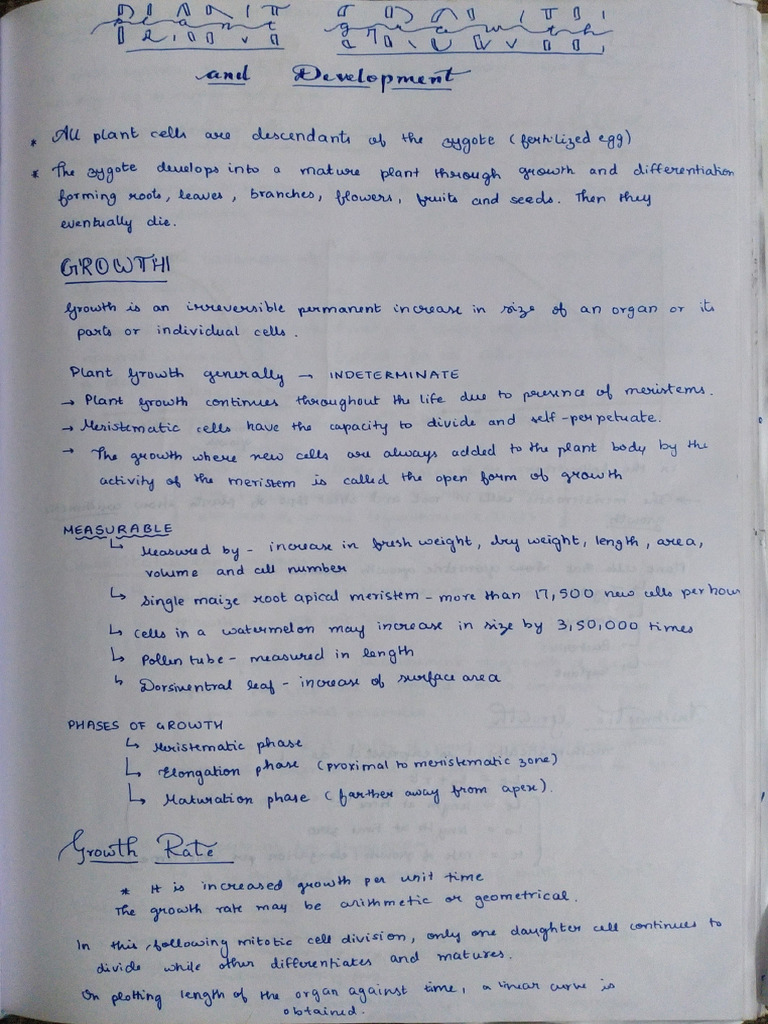 Plant growth
and Development
* All plant cells are descendants of the zygote (fertilized egg)
* The zygote develops into a mature plant through growth and differentiation
forming roots, leaves, branches, flowers, fruits and seeds. Then they
eventually die.
GROWTH
Growth is an irreversible permanent increase in size of an organ or its
parts or individual cells.
Plant Growth generally → INDETERMINATE
→ Plant Growth continues throughout the life due to presence of meristems.
→ Meristematic cells have the capacity to divide and self-perpetuate.
→ The growth where new cells are always added to the plant body by the
activity of the meristem is called the open form of growth
MEASURABLE
↳ Measured by - increase in fresh weight, dry weight, length, area,
volume and cell number
↳ Single maize root apical meristem - more than 17,500 new cells per hour
↳ Cells in a watermelon may increase in size by 3,50,000 times
↳ Pollen tube - measured in length
↳ Dorsiventral leaf - increase of surface area
PHASES OF GROWTH
↳ Meristematic phase
↳ Elongation phase (proximal to meristematic zone)
↳ Maturation phase (farther away from apex).
Growth Rate
* It is increased growth per unit time
The growth rate may be arithmetic or geometrical.
In this, following mitotic cell division, only one daughter cell continues to
divide while other differentiates and matures.
On plotting length of the organ against time, a linear curve is
obtained.